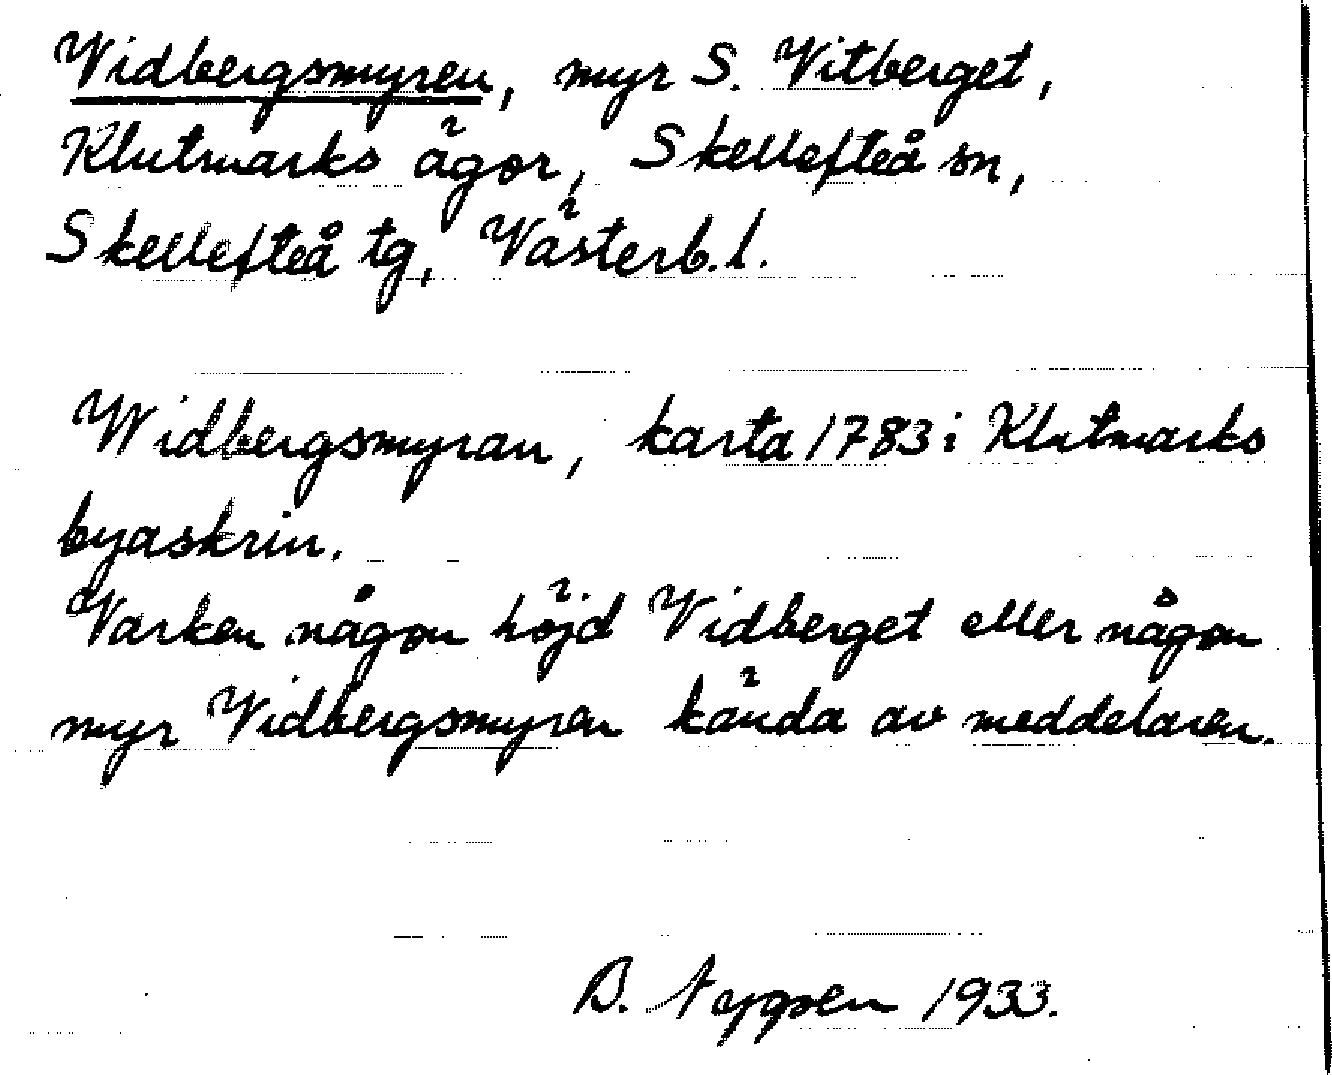 Vidbergsmyren, myr S. Vitberget,
Klutmarks ägor, Skellefteå sn,
Skellefteå tg, Västerb. l.
Widbergsmyran, karta 1783 i Klutmarks
byaskrin.
Varken någon höjd Vidberget eller någon
myr Vidbergsmyren kända av meddelaren.
B. 1933.